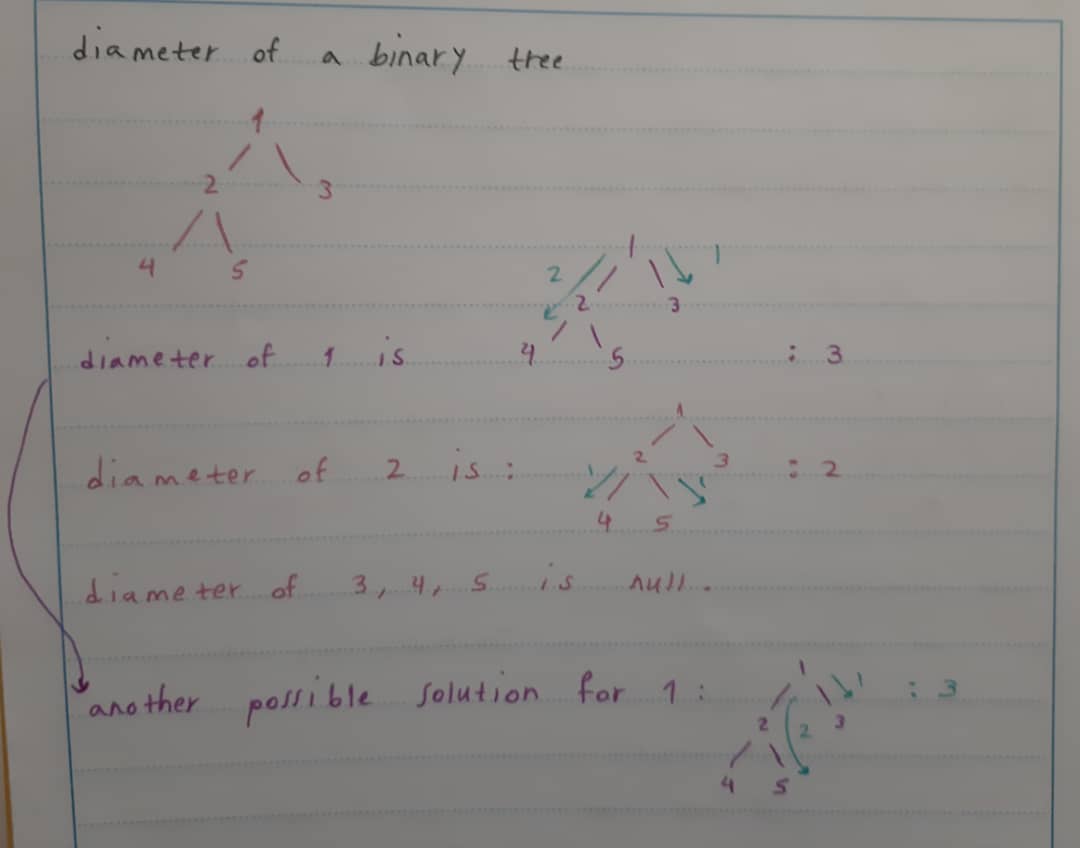 diameter of a binary tree
1
2 3
4 5
1
2 1
2 3
diameter of 1 is 4 5 : 3
1
diameter of 2 is : 1 2 3 1 : 2
4 5
diameter of 3, 4, 5 is null.
another possible solution for 1 : 1 1 : 3
2 2 3
4 5